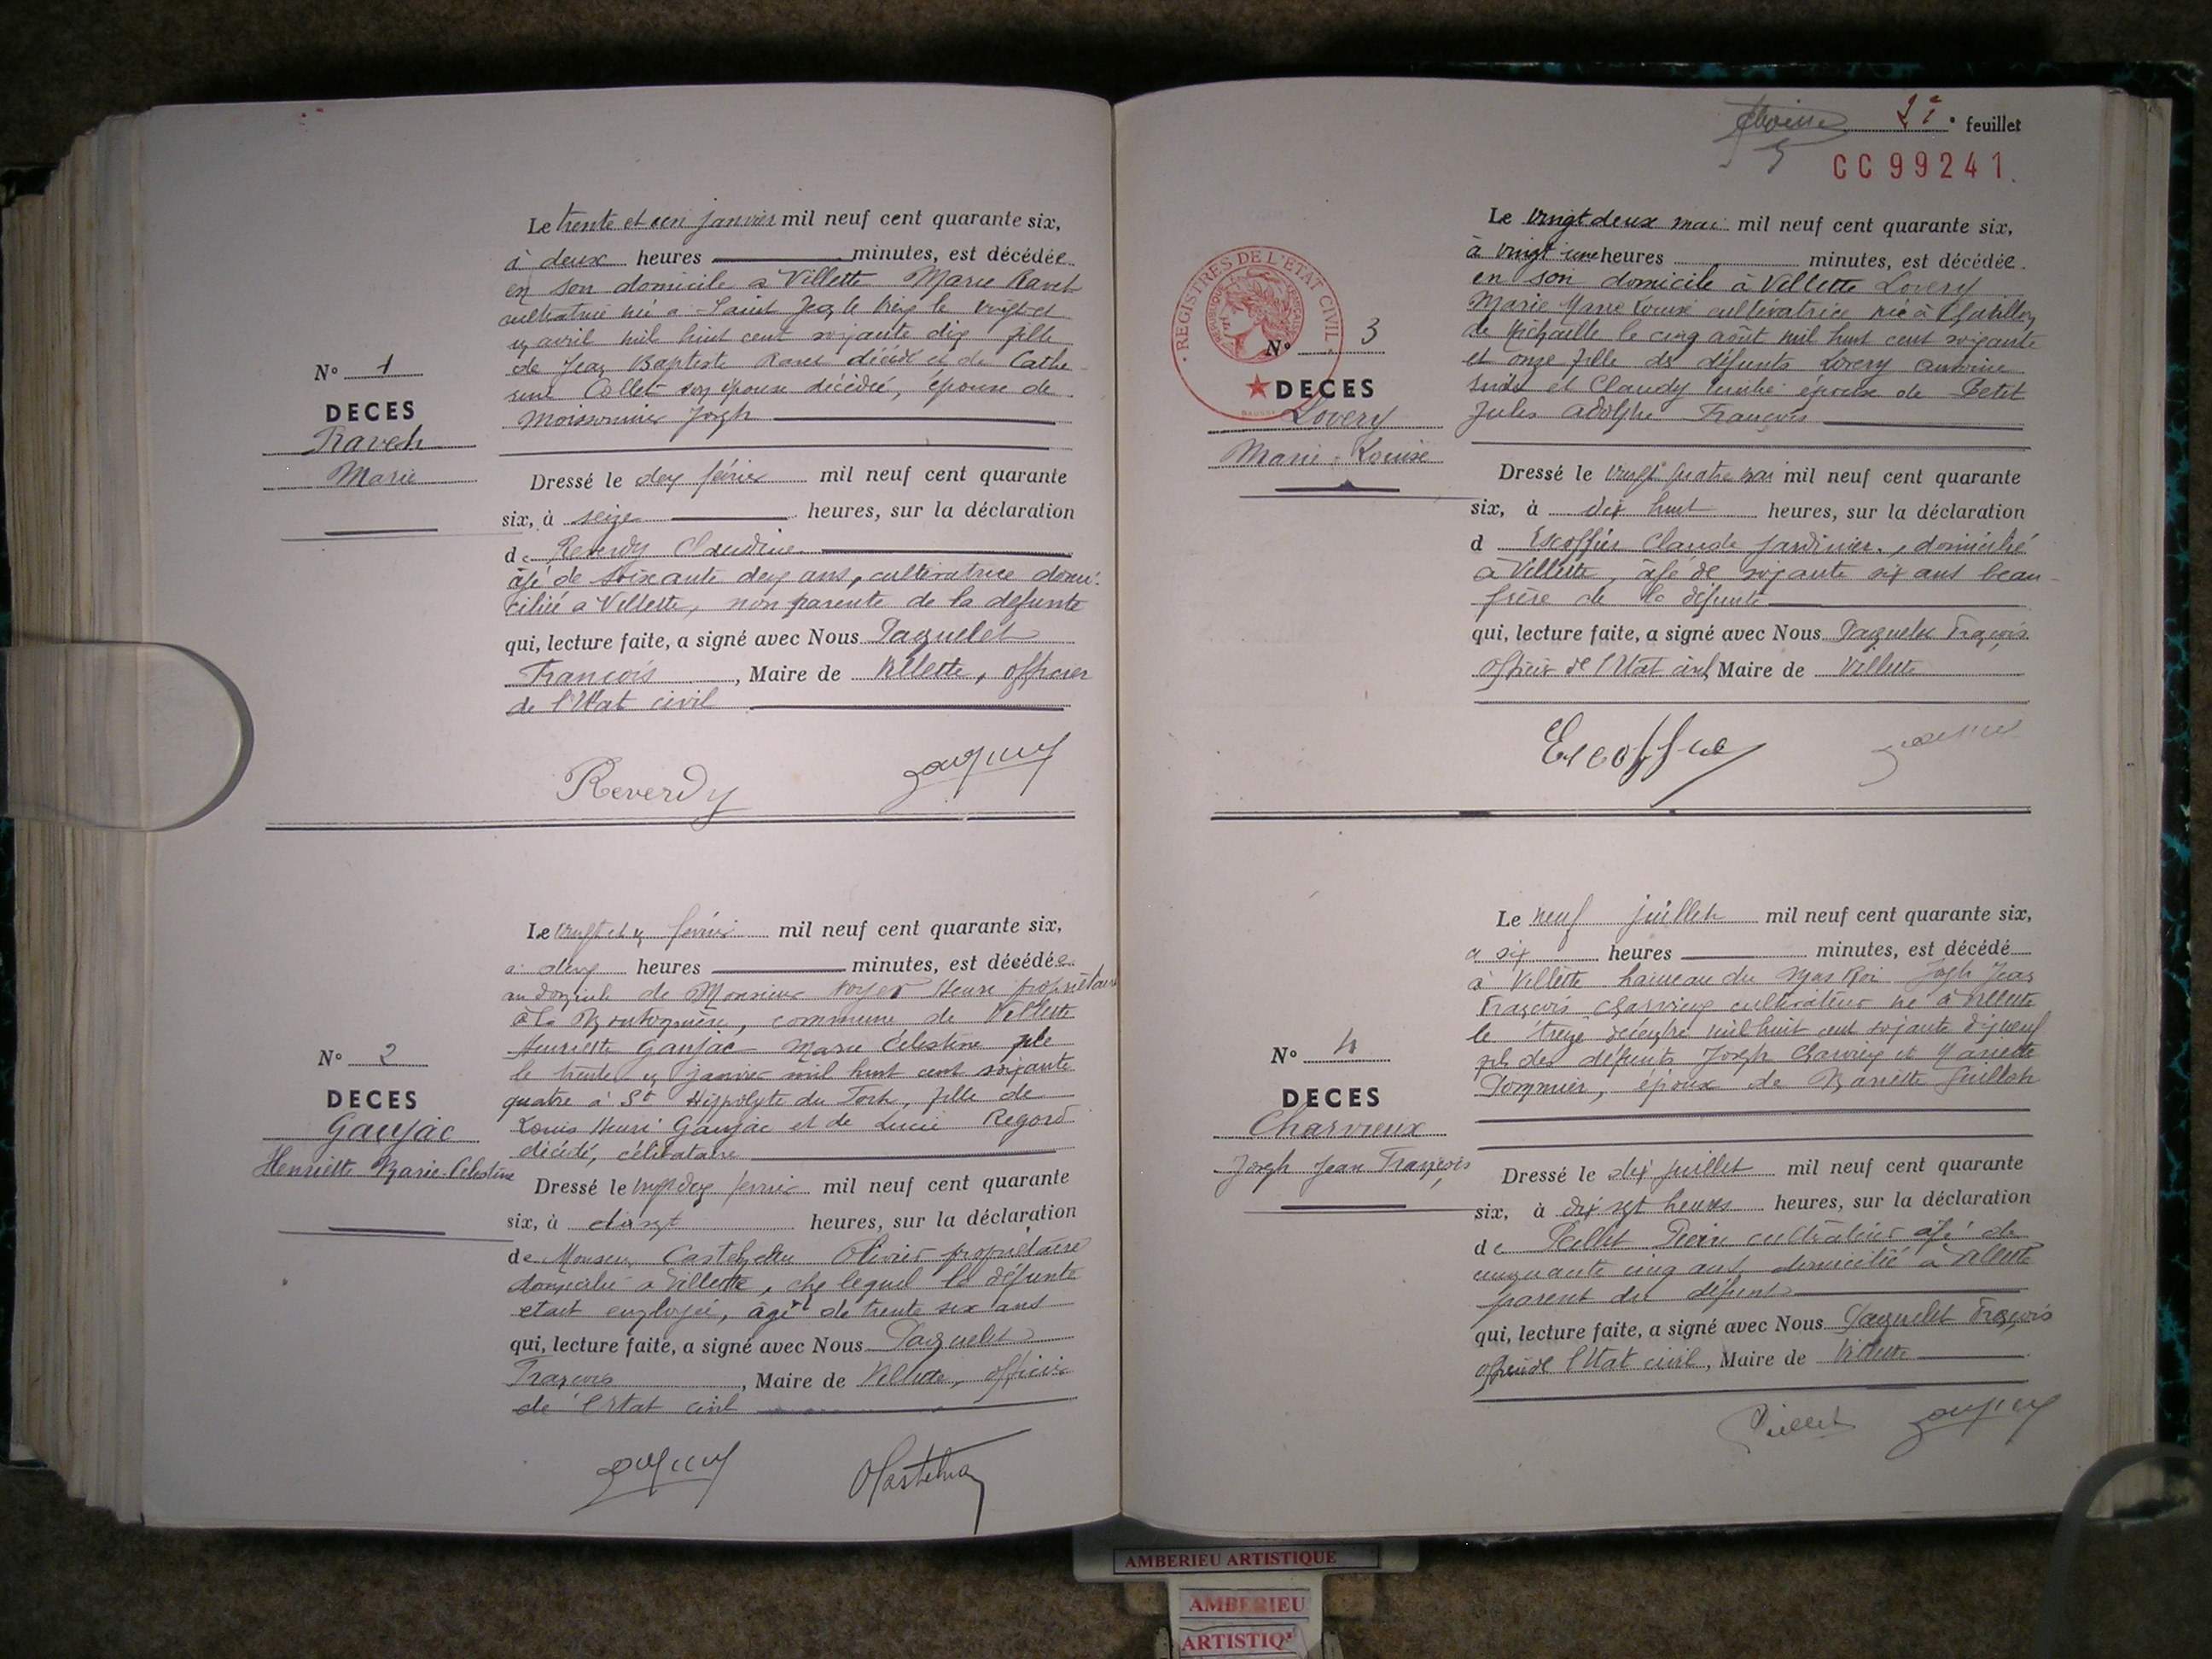 N° 1
DECES
Ravet
Marie
Le trente et un janvier mil neuf cent quarante six,
à deux heures minutes, est décédée
en son domicile a Villette Marie Ravet
cultivatrice née a Saint Jean le Vieux le vingt et
un avril mil huit cent soixante dix fille
de Jean Baptiste Ravet décédé et de Cathe
rine Collet son épouse décédée, épouse de
Moissonnier Joseph
Dressé le deux février mil neuf cent quarante
six, à seize heures, sur la déclaration
de Reverdy Claudine
âgé de soixante deux ans, cultivatrice domi-
ciliée a Villette, non parente de la defunte
qui, lecture faite, a signé avec Nous Paquelet
François, Maire de Villette, officier
de l'Etat civil
Reverdy
N° 2
DECES
Gaujac
Henriette Marie-Célestine
Le vingt et un février mil neuf cent quarante six,
à deux heures minutes, est décédée
au domicile de Monsieur Henri propriétaire
à la commune de Villette
Henriette Gaujac Marie Célestine née
le trente un janvier mil huit cent soixante
quatre à St Hippolyte du Fort, fille de
Louis Henri Gaujac et de Lucie Regord
décédé, célibataire
Dressé le vingt deux fevrier mil neuf cent quarante
six, à dix sept heures, sur la déclaration
de Monsieur Olivier propriétaire
domicilié a Villette, chez lequel la défunte
etait employée, âgé de trente six ans
qui, lecture faite, a signé avec Nous Paquelet
François, Maire de Villette, officier
de l'Etat civil
2e feuillet
CC99241
REGISTRES DE L'ETAT CIVIL
N° 3
DECES
Lovery
Marie-Louise
Le vingt deux mai mil neuf cent quarante six,
à vingt une heures minutes, est décédée
en son domicile à Villette Lovery
Marie Louise cultivatrice née à Chatillon
de Michaille le cinq août mil huit cent soixante
et onze fille des défunts Lovery
et Claudy épouse de Petit
Jules Adolphe François
Dressé le vingt quatre mai mil neuf cent quarante
six, à dix huit heures, sur la déclaration
d Escoffier Claude jardinier, domicilié
à Villette, âgé de soixante six ans beau-
frère de la défunte
qui, lecture faite, a signé avec Nous Paquelet François
officier de l'Etat civil Maire de Villette
N° 4
DECES
Charvieux
Joseph Jean François
Le neuf juillet mil neuf cent quarante six,
a six heures minutes, est décédé
à Villette hameau du Joseph Jean
François Charvieux cultivateur né à Villette
le treize décembre mil huit cent soixante dix neuf
fils des défunts Joseph Charvieux et Mariette
Pommier, époux de Mariette Guillot
Dressé le dix juillet mil neuf cent quarante
six, à dix sept heures heures, sur la déclaration
de Pierre cultivateur âgé de
cinquante cinq ans domicilié à Villette
parent du défunt
qui, lecture faite, a signé avec Nous Paquelet François
officier de l'Etat civil, Maire de Villette
AMBERIEU ARTISTIQUE
AMBERIEU
ARTISTIQ